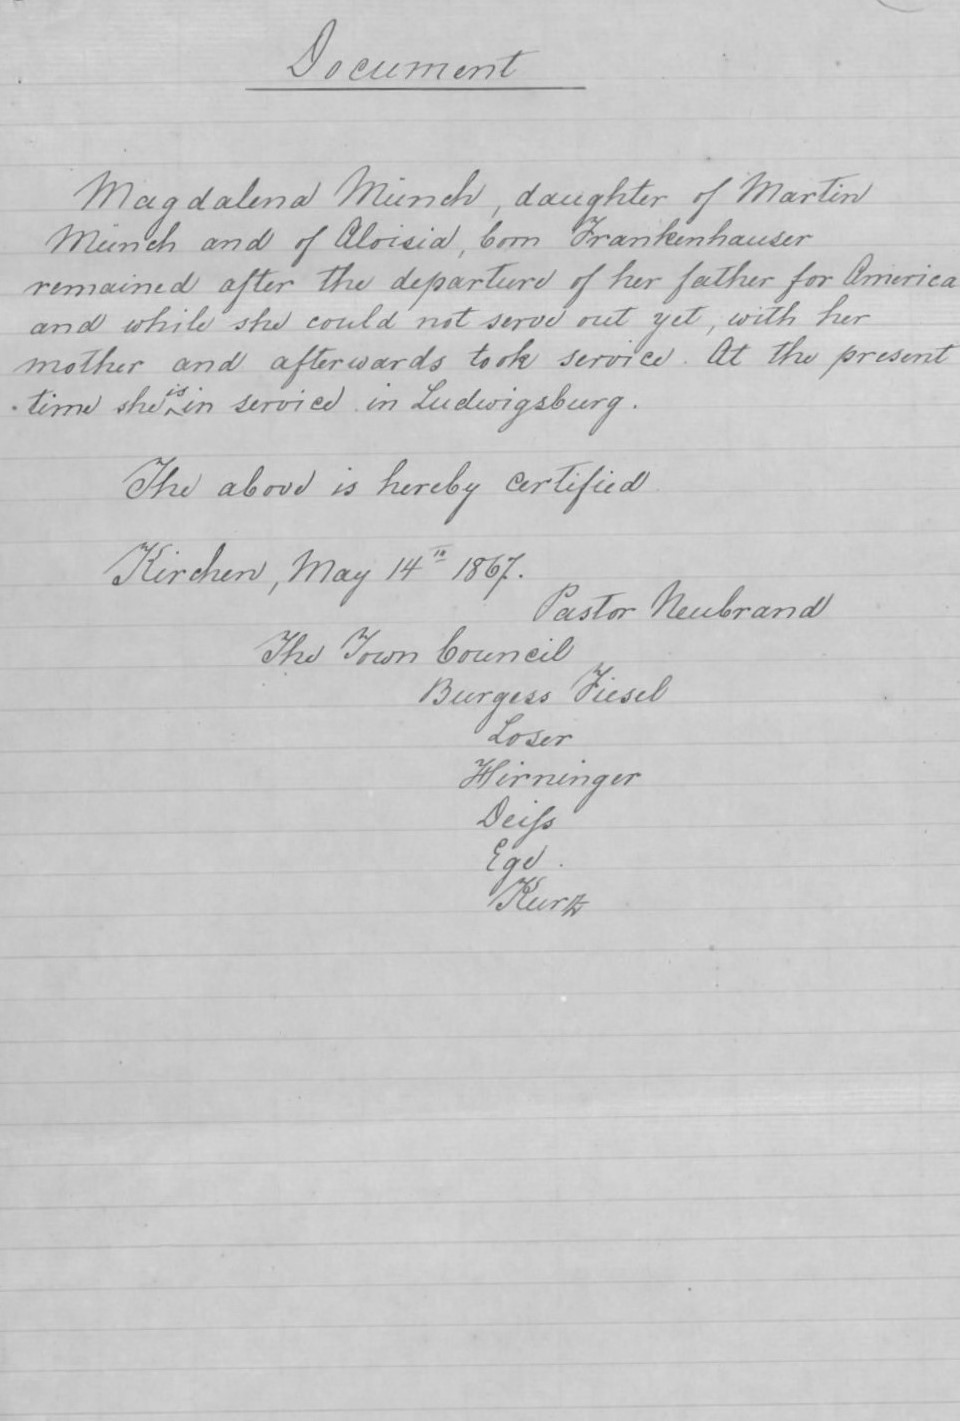 Document
Magdalena Münch, daughter of Martin
Münch and of Aloisia, born Frankenhauser
remained after the departure of her father for America
and while she could not serve out yet, with her
mother and afterwards took service. At the present
time she is in service in Ludwigsburg.
The above is hereby certified
Kirchen, May 14th 1867.
Pastor Neubrand
The Town Council
Burgess Fiesel
Loser
Hirninger
Deiſs
Ege.
Kurtz